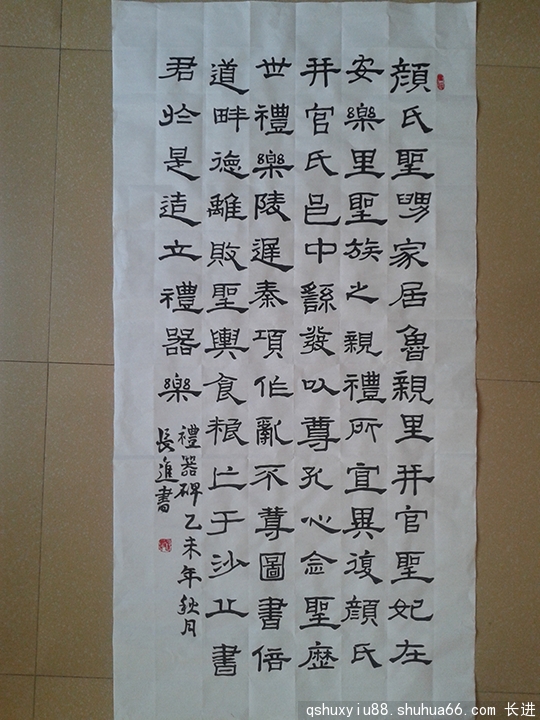 顏氏聖舅家居魯親里并官聖妃在
安樂里聖族之親禮所宜異復顏氏
并官氏邑中繇發以尊孔心念聖歷
世禮樂陵遲秦項作亂不尊圖書倍
道畔德離敗聖輿食糧亡于沙丘書
君於是造立禮器樂
禮器碑乙未年秋月
長進書
qshuxyiu88.shuhua66.com 长进